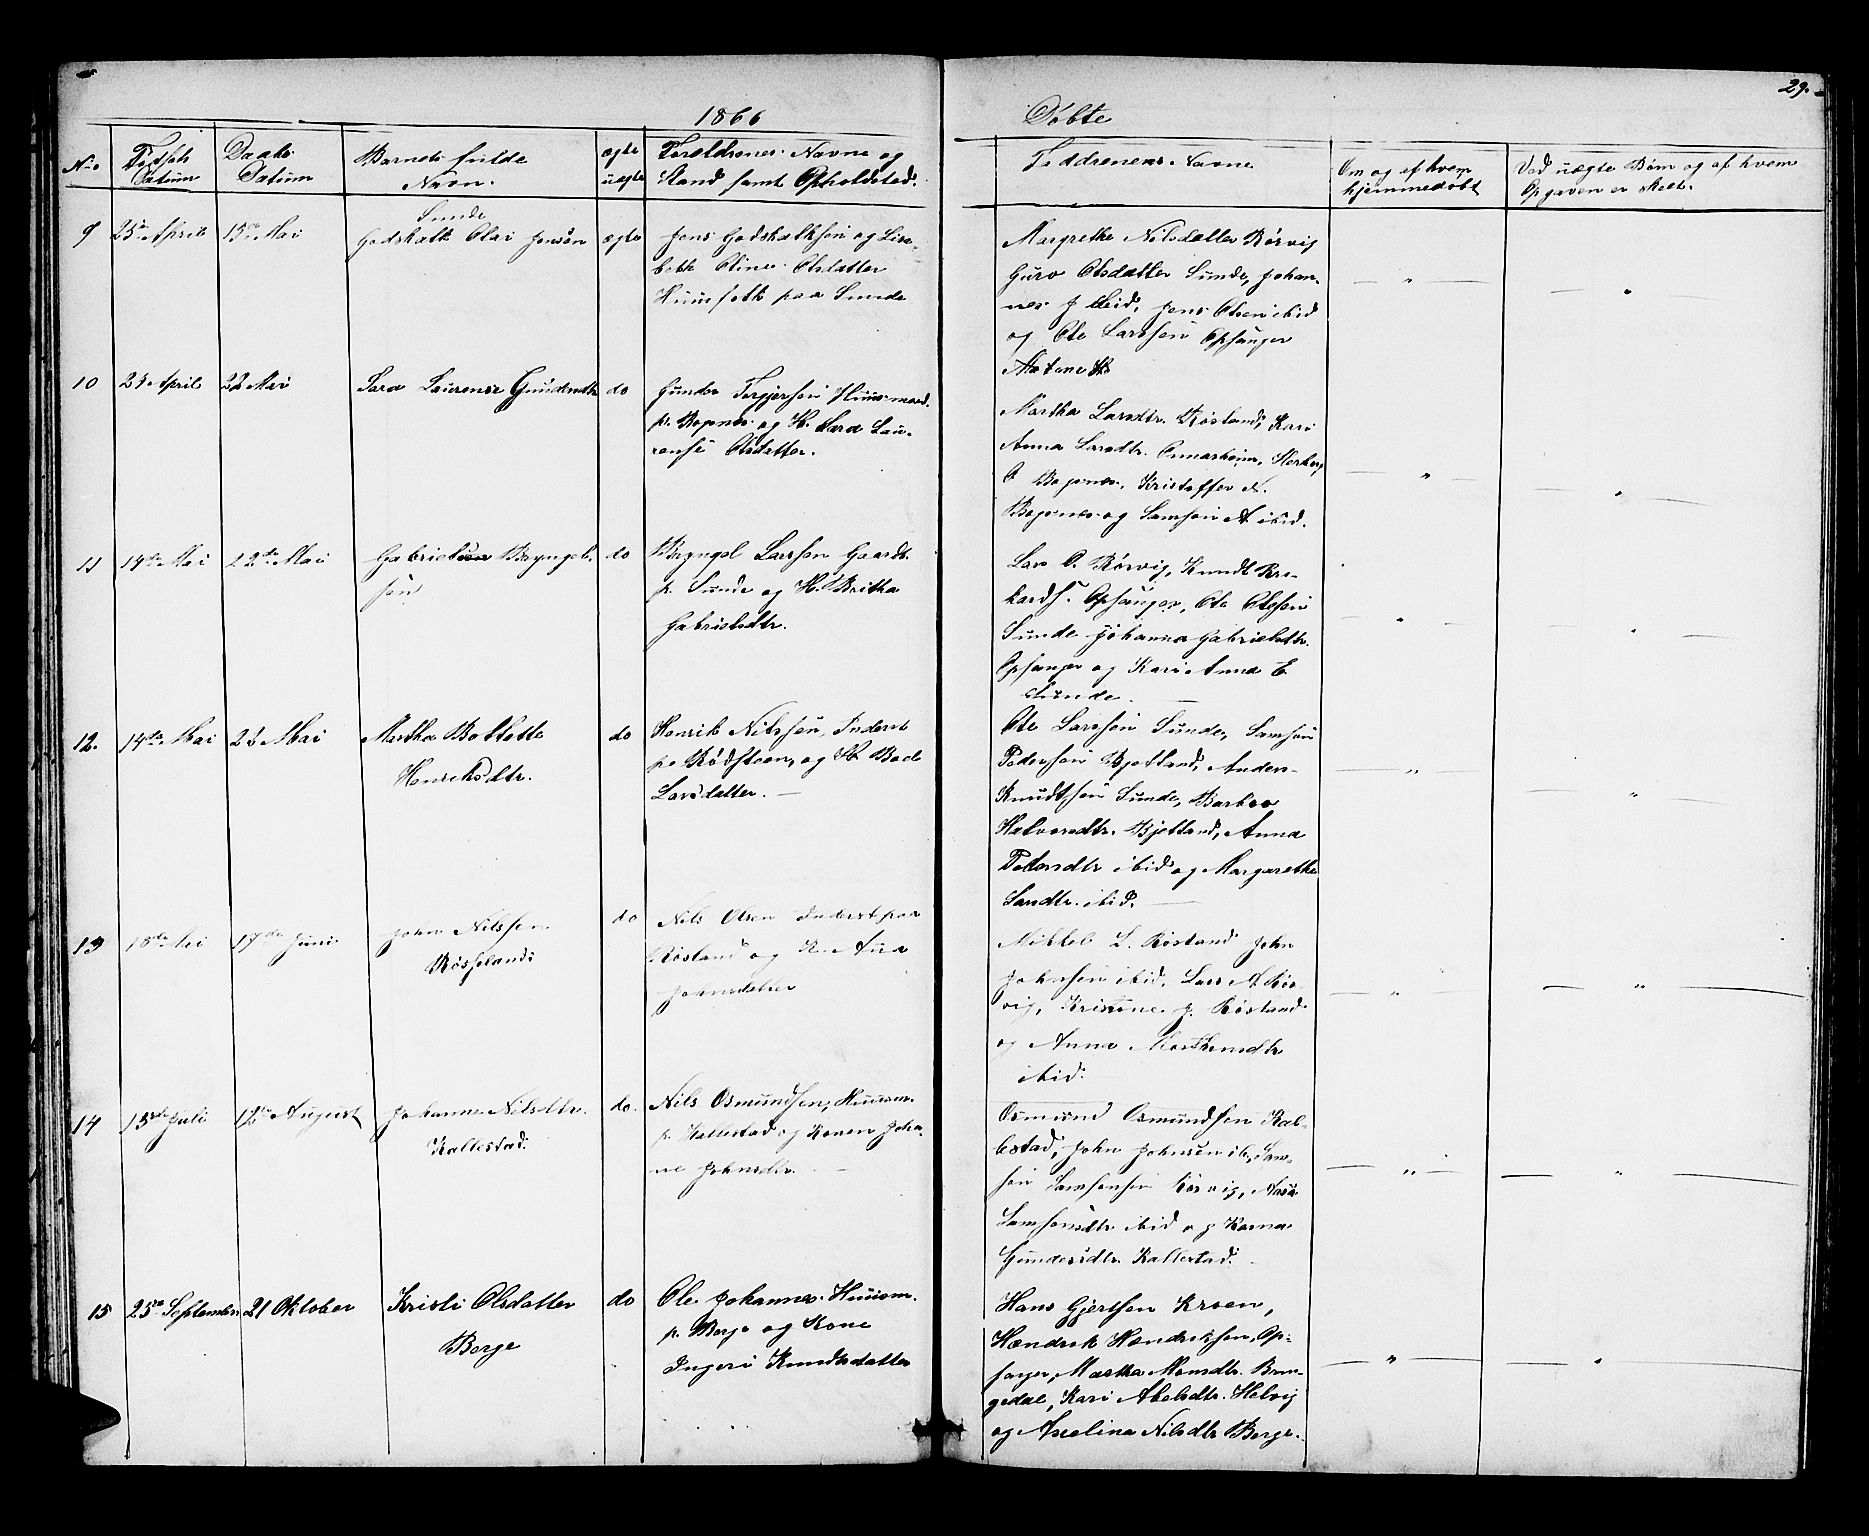 29.
1866
Døbte
No
Fødsels
Datum
Daabs
Datum
Barnets fulde
Navn.
ægte
uægte
Forældrenes Navne og
Stand samt Opholdsted.
Faddrenens Navne
Om og af hvem
hjemmedøbt
Ved uægte Børn og af hvem
Opgaven er skeet.
9 25de April 15de Mai
Sunde
Godskalk Olai Jensen
ægte
Jens Godskalksen og Lise-
beth Oline Olsdatter
Huusfolk paa Sunde
Margrethe Nilsdatter Rørvig
Guro Olsdatter Sunde, Johan-
nes J ibid, Jens Olsen ibid
og Ole Larssen Opsanger
10 23 April 22 Mai
Sara Laurense Gundersdtr
do
Gunder Torgjersen Huusmand.
p. Bogsnes og K. Sara Lau-
rense Olsdatter.
Martha Larsdtr. Røsland, Kari
Anna Larsdtr. Omarheim,
O Bogsnes, Kristoffer N.
Bogsnes og Samson A ibid.
11 14de Mai 22de Mai
Gabriel Bryngels-
sen
do
Bryngel Larssen Gaardb.
p. Sunde og K. Britha
Gabrielsdtr.
Lars O. Rørvig, Knudt Ri-
kards. Opsanger, Ole Olssen
Sunde Johanna Gabrielsdtr.
Opsanger og Kari Anna E
Sunde
12. 14de Mai 22 Mai
Martha Bollette
Henriksdtr.
do
Henrik Nilssen, Inderst
pa Rødsteen, og K. Bole
Larsdatter.
Ole Larssen Sunde, Samson
Pedersen Bjelland, Anders
Knudtsen Sunde, Barbro
Halvorsdtr. Bjelland, Anna
Pedersdtr ibid og Margarethe
Larsdtr. ibid.
13 18de Mai 17de Juni
John Nilssen
Røsseland
do
Nils Olsen Inderst paa
Røsland og K. Anna
Johnsdatter
Mikkel L. Røsland John
Johnsen ibid, Lars A Rør-
vig, Kristine J. Røsland
og Anna Mortensdtr
ibid.
14 15de Juli 12te August
Johanne Nilsdtr.
Kallestad
do.
Nils Osmundsen, Huusm.
p. Kallestad og Konen Joha-
ne Johnsdtr.
Osmund Osmundsen Kal-
lestad, John Johnsen ib, Sam-
son Samsonsen Rørvig, Anna
Samsonsdtr ibid og Karna
Gundersdtr. Kallestad.
15 25de September 21 Oktober
Kristi Olsdatter
Berge
do
Ole Johannes. Huusm.
p. Berge og Kone
Ingeri Knudtsdatter
Hans Gjertsen Kroen,
Hændrik Hændriksen, Op-
sanger, Martha Monsdtr. Bon-
gedal, Kari Abelsdtr. Helvig
og Aselina Nilsdtr Berge.